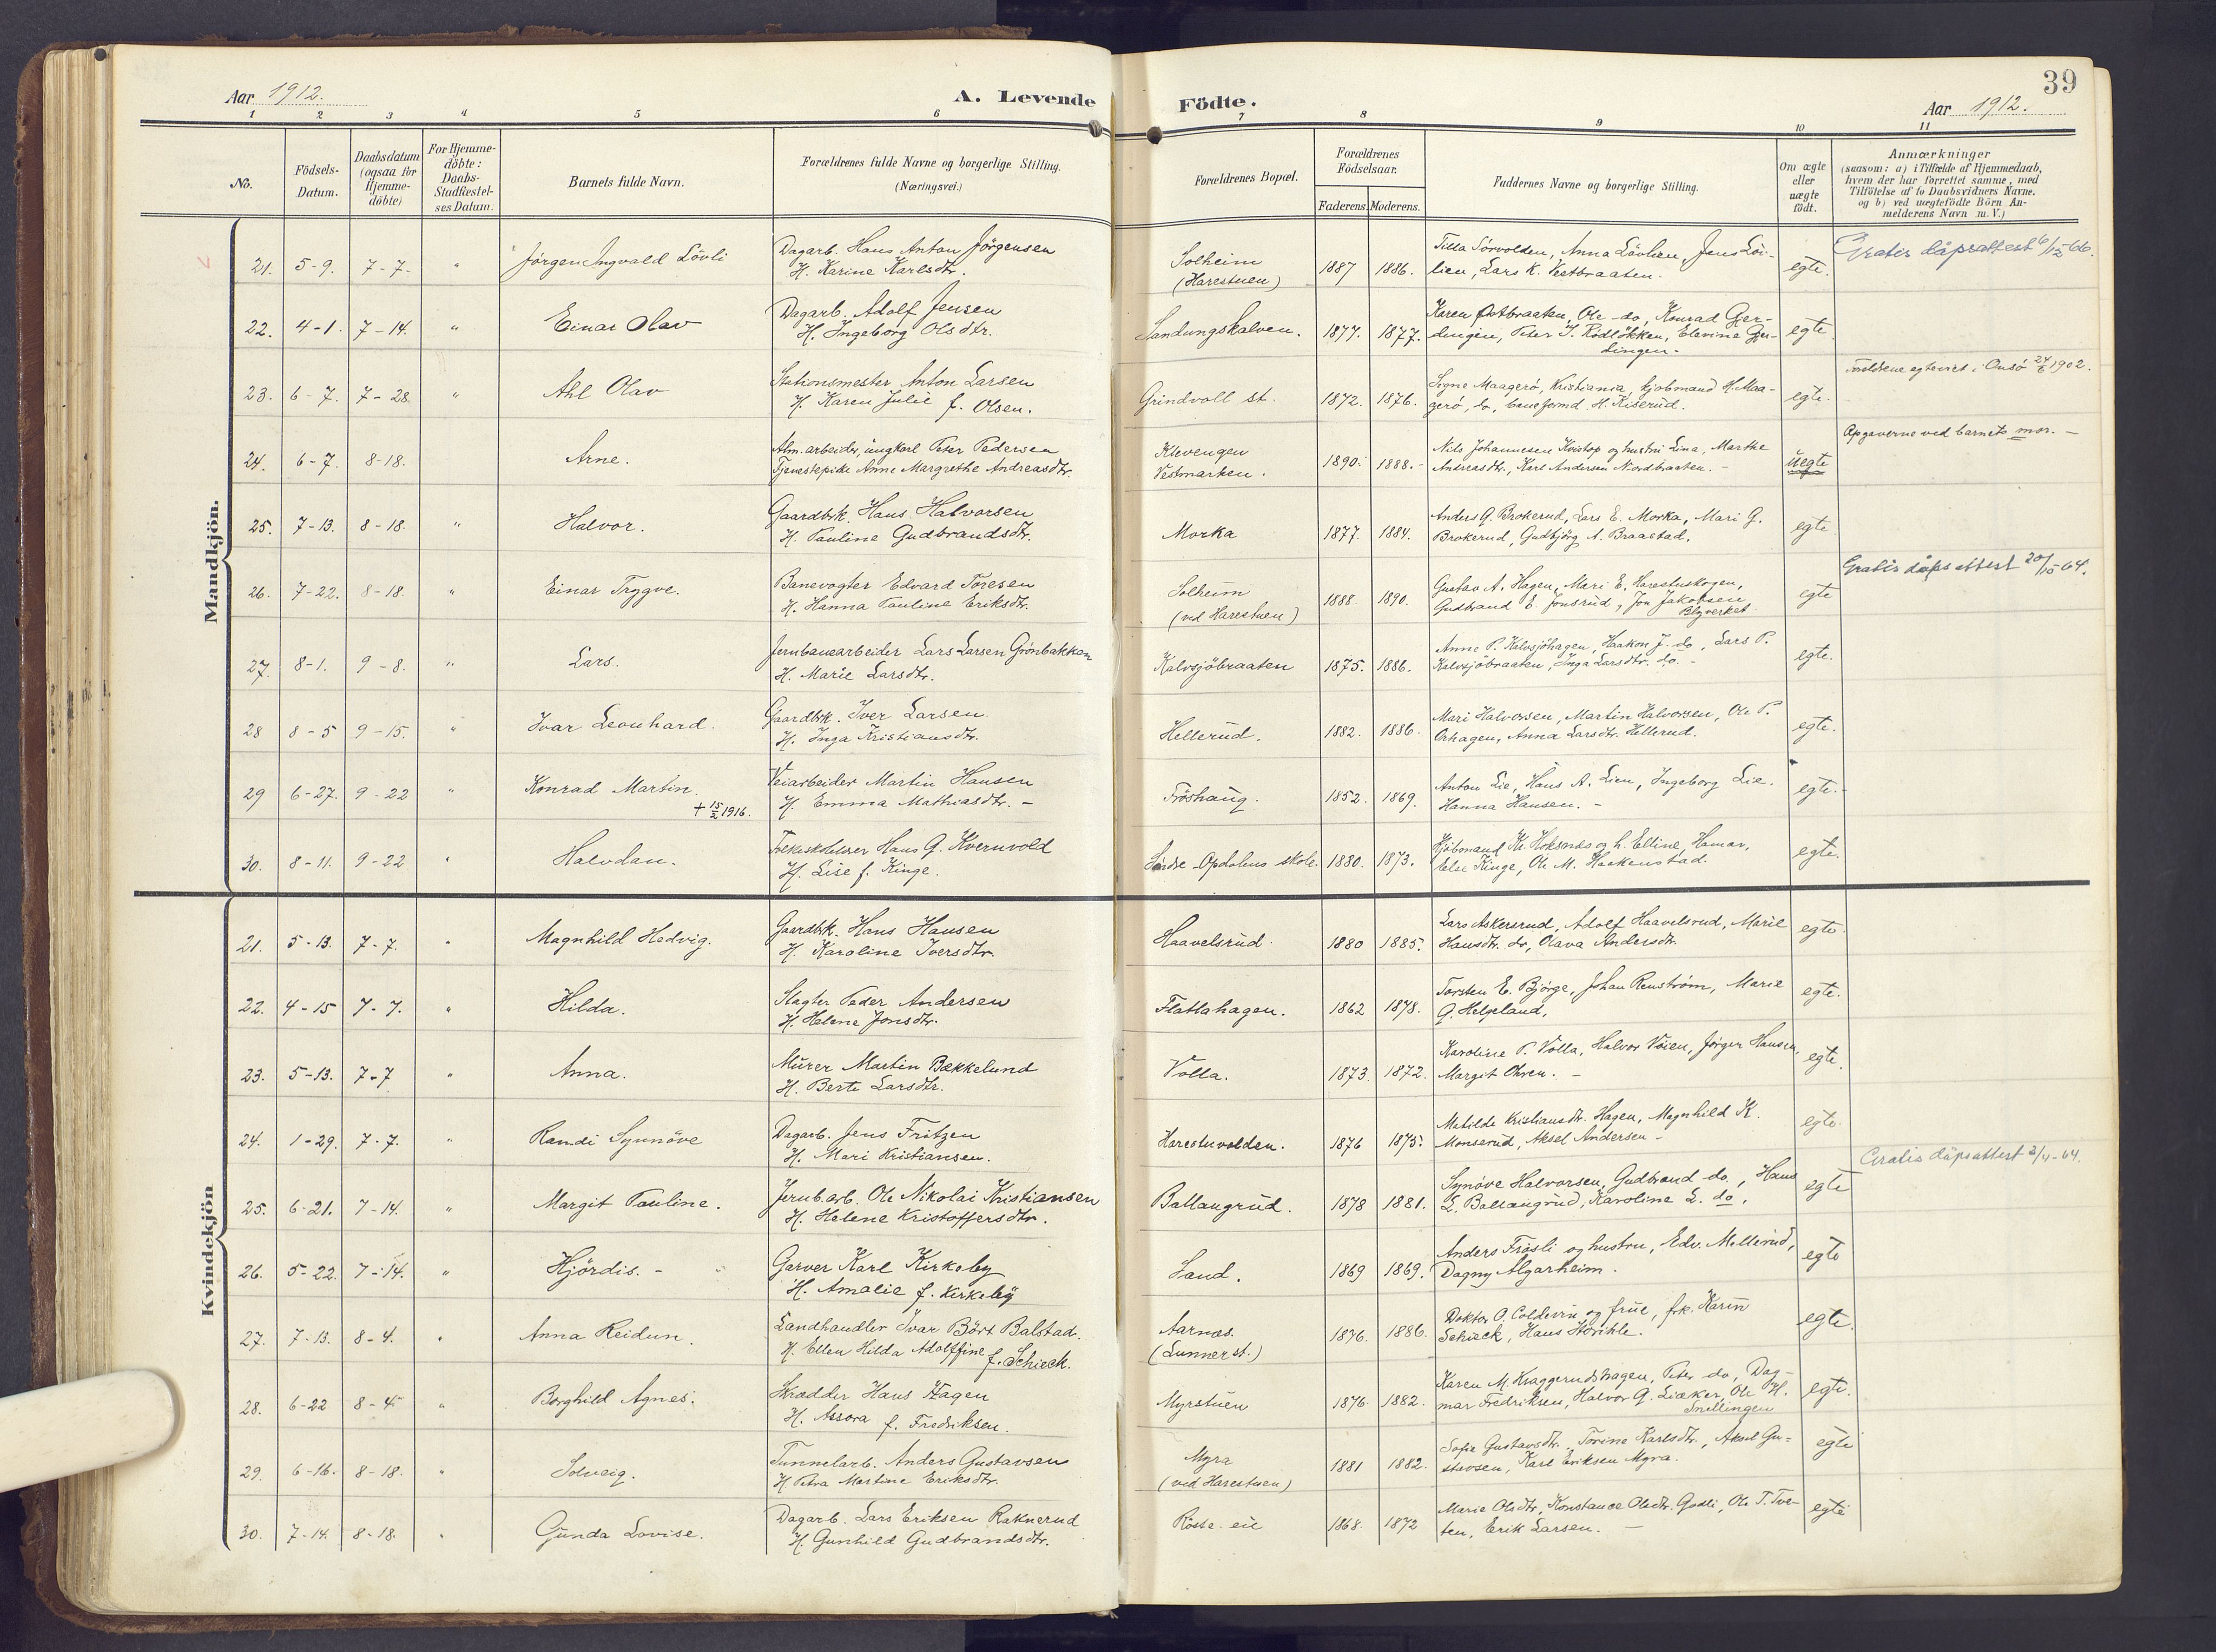 39
Aar 1912.
A. Levende Födte.
Aar 1912.
1 2 3 4 5 6 7 8 9 10 11
No.
Födsels-Datum.
Daabsdatum (ogsaa for Hjemme-döbte)
For Hjemme-döbte: Daabs-Stadfæstel-ses Datum.
Barnets fulde Navn.
Forældrenes fulde Navne og borgerlige Stilling. (Næringsvei.)
Forældrenes Bopæl.
Forældrenes Födselsaar.
Faderens. Moderens.
Faddernes Navne og borgerlige Stilling.
Om ægte eller uægte födt.
Anmærkninger
(saasom: a) i Tilfælde af Hjemmedaab,
hvem der har forrettet samme, med
Tilföielse af to Daabsvidners Navne.
og b) ved uægtefödte Börn An-
melderens Navn m. V.)
Mandkjön.
21. 5-9. 7-7. " Jörgen Ingvald Lövli Dagarb. Hans Anton Jörgensen Solheim 1887 1886. Tilla Sörvolden, Anna Lövlien, Jens Löv- egte. Gratis dåpsattest 6/12 66.
H. Karine Karlsdtr. (Harestuen) lien, Lars K. Vestbraaten.
22. 4-1. 7-14. " Einar Olav Dagarb. Adolf Jensen Sandungskalven. 1877. 1877. Karen Østbraaten, Ole do, Konrad Gjer- egte
H. Ingeborg Olsdtr. dingen, Peter J. Rödlökken, Elevine Gjer-
dingen.
23. 6-7. 7-28 " Ahl Olav Stationsmester Anton Larsen Grindvoll st. 1872. 1876. Signe Maagerö, Kristiania, kjöbmand H. Maa- egte. Foreldrene egteviet i Onsö 24/6 1902.
H. Karen Julie f. Olsen. gerö, do, baneformd. H. Kiserud.
24. 6-7. 8-18. Arne. Alm. arbeider, ungkarl Peter Pedersen Klevengen 1890. 1888. Nils Johannesen Kvistop og hustru Lina, Marthe uegte Opgaverne ved barnets mor. —
Tjenestepike Anne Margrethe Andreasdtr. Vestmarken. Andreasdtr., Karl Andersen Nordbraaten. -
25. 7-13. 8-18. " Halvor. Gaardbrk. Hans Halvorsen Morka 1877. 1884. Anders G. Brokerud, Lars E. Morka, Mari G. egte
H. Pauline Gudbrandsdtr. Brokerud, Gudbjörg A. Braastad.
26. 7-22. 8-18. " Einar Trygve. Banevogter Edvard Toresen Solheim 1888. 1890. Gustav A. Hagen, Mari E. Harestuskogen, egte Gratis dåpsattest 20/10 64.
H. Hanna Pauline Eriksdtr. (ved Harestuen) Gudbrand E. Jonsrud, Jon Jakobsen
Blyverket
27. 8-1. 9-8. " Lars. Jernbanearbeider Lars Larsen Grönbakken Kalvsjöbraaten 1875. 1886. Anne P. Kalvsjöhagen, Haakon J. do, Lars P. egte.
H. Marie Larsdtr. Kalvsjöbraaten, Inga Larsdtr. do. -
28 8-5 9-15. " Ivar Leonhard. Gaardbrk. Iver Larsen. Hellerud. 1882. 1886. Mari Halvorsen, Martin Halvorsen, Ole P. egte.
H. Inga Kristiansdtr. Orhagen, Anna Larsdtr. Hellerud.
29 6-27. 9-22 " Konrad Martin Veiarbeider Martin Hansen Fröshaug. 1852. 1869. Anton Lie, Hans A. Lien, Ingeborg Lie. egte.
+ 15/2 1916. H. Emma Mathiasdtr. - Hanna Hansen. -
30. 8-11. 9-22 " Halvdan. Folkeskolelærer Hans G. Kvernvold Söndre Opdalens skole. 1880. 1873. Kjöbmand Kr. Hoksnes og h. Elline, Hamar, egte.
H. Lise f. Kinge. Else Kinge, Ole M. Haakenstad.
Kvindekjön
21. 5-13. 7-7. " Magnhild Hedvig. Gaardbrk. Hans Hansen Haavelsrud. 1880 1885. Lars Askersrud, Adolf Haavelsrud, Marie egte.
H. Karoline Iversdtr. Hansdtr. do, Olava Andersdtr.
22. 4-15 7-7. " Hilda. Slagter Peder Andersen Flattahagen. 1862 1878. Torsten E. Bjørge, Johan Renström, Marie egte.
H. Helene Jonsdtr. G. Helgeland,
23. 5-13. 7-7 " Anna. Murer Martin Bækkelund Volla. 1873. 1872. Karoline P. Volla, Halvor Voien, Jörgen Hansen, egte.
H. Berte Larsdtr. Margit Ohren. -
24. 1-29. 7-7. " Randi Synnöve Dagarb. Jens Fritzen Harestuvolden. 1876 1875. Matilde Kristiansdtr. Hagen, Magnhild K. egte.
H. Mari Kristiansen. Monserud, Aksel Andersen -
25. 6-21. 7-14. " Margit Pauline. Jernb.arb. Ole Nikolai Kristiansen Ballangrud. 1878 1881. Synöve Halvorsen, Gudbrand do., Hans egte Gratis dåpsattest 2/11-64.
H. Helene Kristoffersdtr. L. Ballangrud, Karoline L. do,
26. 5-22. 7-14. " Hjördis. - Garver Karl Kirkeby Sand. 1869 1869. Anders Frösli og hustru, Edv. Mellerud, egte
H. Amalie f. Kirkeby Dagny Algarheim.
27. 7-13. 8-4. " Anna Reidun. Landhandler Ivar Bört Balstad. Aarnæs. 1876. 1886. Doktor O. Coldevin og frue, frk. Karin egte.
H. Ellen Hilda Adolffine f. Schieck. (Lunner st.) Schieck, Hans
28. 6-22 8-4 " Borghild Agnes. Skrædder Hans Hagen Myrstuen 1876. 1882. Karen M. Kraggerudshagen, Peter do, Dag- egte.
H. Assora f. Fredriksen. mar Fredriksen, Halvor G. Liaker, Ole H.
Snellingen
29. 6-16. 8-18. " Solveig. Tunnelarb. Anders Gustavsen Myra 1881 1882. Sofie Gustavsdtr., Torine Karlsdtr., Aksel Gu- egte
H. Petra Martine Eriksdtr. (ved Harestuen) stavsen, Karl Eriksen Myra.
30. 7-14. 8-18. " Gunda Lovise. Dagarb. Lars Eriksen Raknerud Röste-eie 1868. 1872 Marie Olsdtr., Konstance Olsdtr. Godli, Ole T. Tve- egte
H. Gunhild Gudbrandsdtr. ten, Erik Larsen. —